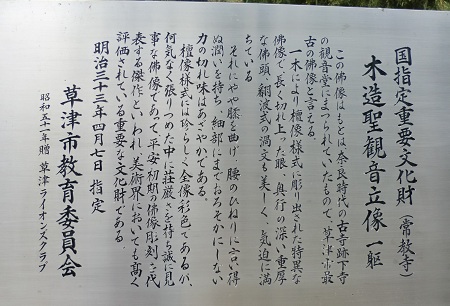 国指定重要文化財(常教寺)
木造聖観音立像 一躯
この佛像はもとは奈良時代の古寺跡下寺
の観音堂にまつられていたもので、草津市最
古の佛像と言える
一木により檀像様式に彫り出された特異な
佛像で、長く切れ上った眼、奥行の深い重厚
な佛頭、翻波式の渦文も美しく、気迫に満
ちている
それにやや膝を曲げ、腰のひねりに言い得
ぬ潤いを持ち、細部にまでおろそかにしない
力の切れ味はあざやかである。
檀像様式には珍らしく全像彩色であるが、
何気なく張りつめた中に荘厳さを持ち誠に見
事な佛像であって、平安初期の佛像彫刻を代
表する傑作といわれ、美術界においても高く
評価されている重要な文化財である
明治三十三年四月七日 指定
草津市教育委員会
昭和五十一年贈 草津ライオンズクラブ